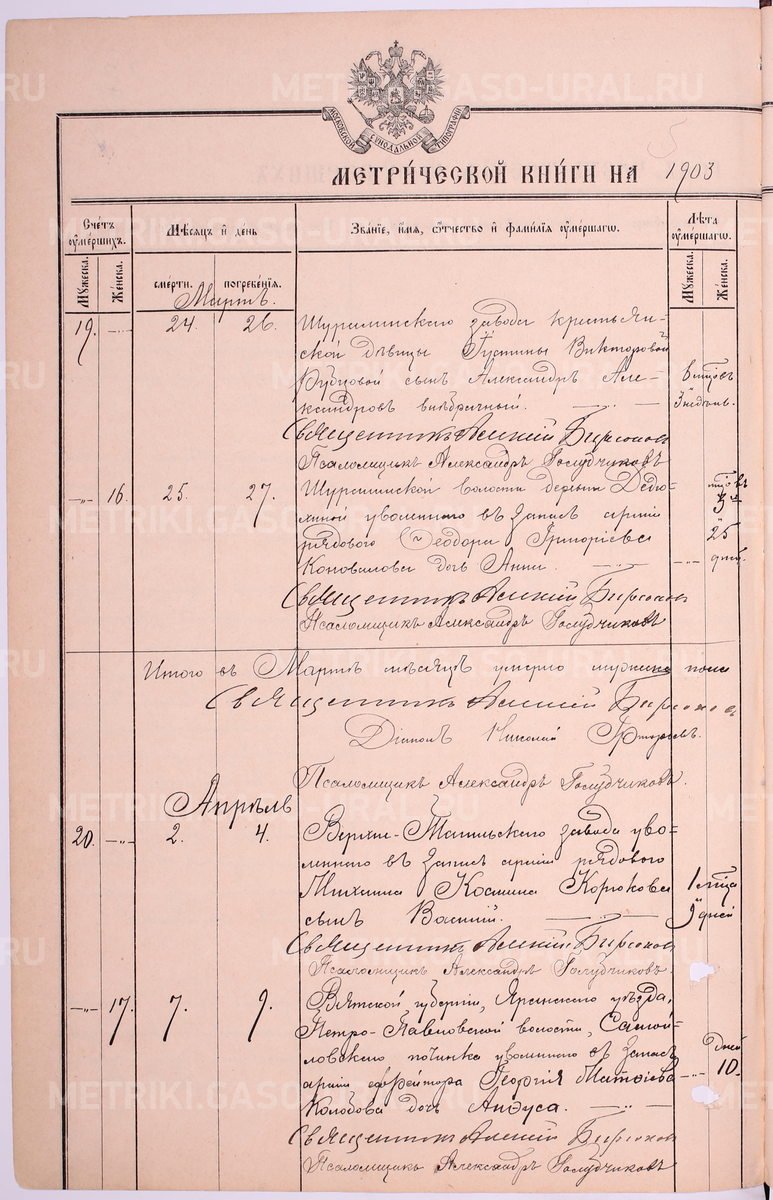 МОСКОВСКОЙ СУНОДАЛЬНОЙ ТИПОГРАФІИ
МЕТРИЧЕСКОЙ КНИГИ НА 1903
Счетъ умершихъ. Мѣсяцъ и день Званіе, имя, отчество и фамилія умершаго. Лѣта умершаго.
Мужеска. Женска. смерти. погребенія. Мужеска. Женска.
Мартъ.
19. —„— 24. 26. Шуралинскаго завода крестьян-
ской дѣвицы Іустины Викторовой
Рубцовой сынъ Александръ Але- 6 мцовъ
ксандровъ внѣбрачный. 3 недѣли.
Священникъ Алексій Бирюков
Псаломщикъ Александръ Голубчиковъ
—„— 16. 25. 27. Шуралинской волости деревни
уволеннаго въ запасъ арміи
рядового Ѳеодора Григоріева 25
Коновалова дочь Анна. —„— дней.
Священникъ Алексій Бирюков
Псаломщикъ Александръ Голубчиковъ
Итого въ Мартѣ мѣсяцѣ умерло мужеска пола
Священникъ Алексій Бирюков
Діаконъ Николай Григорьевъ.
Псаломщикъ Александръ Голубчиковъ.
Апрѣль
20. —„— 2. 4. Верхне-Тагильскаго завода уво-
леннаго въ запасъ арміи рядового
Михаила Косьмина Корюкова 1 мѣсяца
сынъ Василій. 5 дней
Священникъ Алексій Бирюков
Псаломщикъ Александръ Голубчиковъ.
—„— 17. 7. 9. Вятской губерніи, Яранскаго уѣзда,
Петро-Павловской волости, Самой-
ловскаго починка уволеннаго въ запасъ дней
арміи ефрейтора Георгія Матѳіева —„— 10.
Колобова дочь Анѳуса.
Священникъ Алексій Бирюков
Псаломщикъ Александръ Голубчиковъ
METRIKI.GASO-URAL.RU